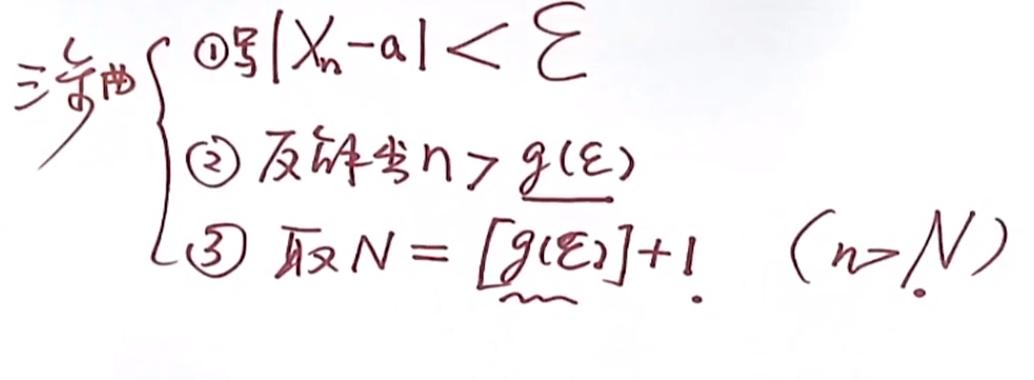 三步曲
①写|Xn-a|<ε
②反解出n>g(ε)
③取N=[g(ε)]+1. (n>N)